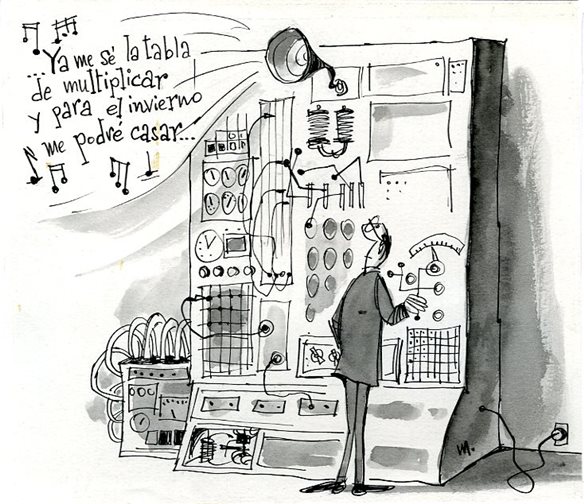 ...Ya me sé la tabla
de multiplicar
y para el invierno
me podré casar...